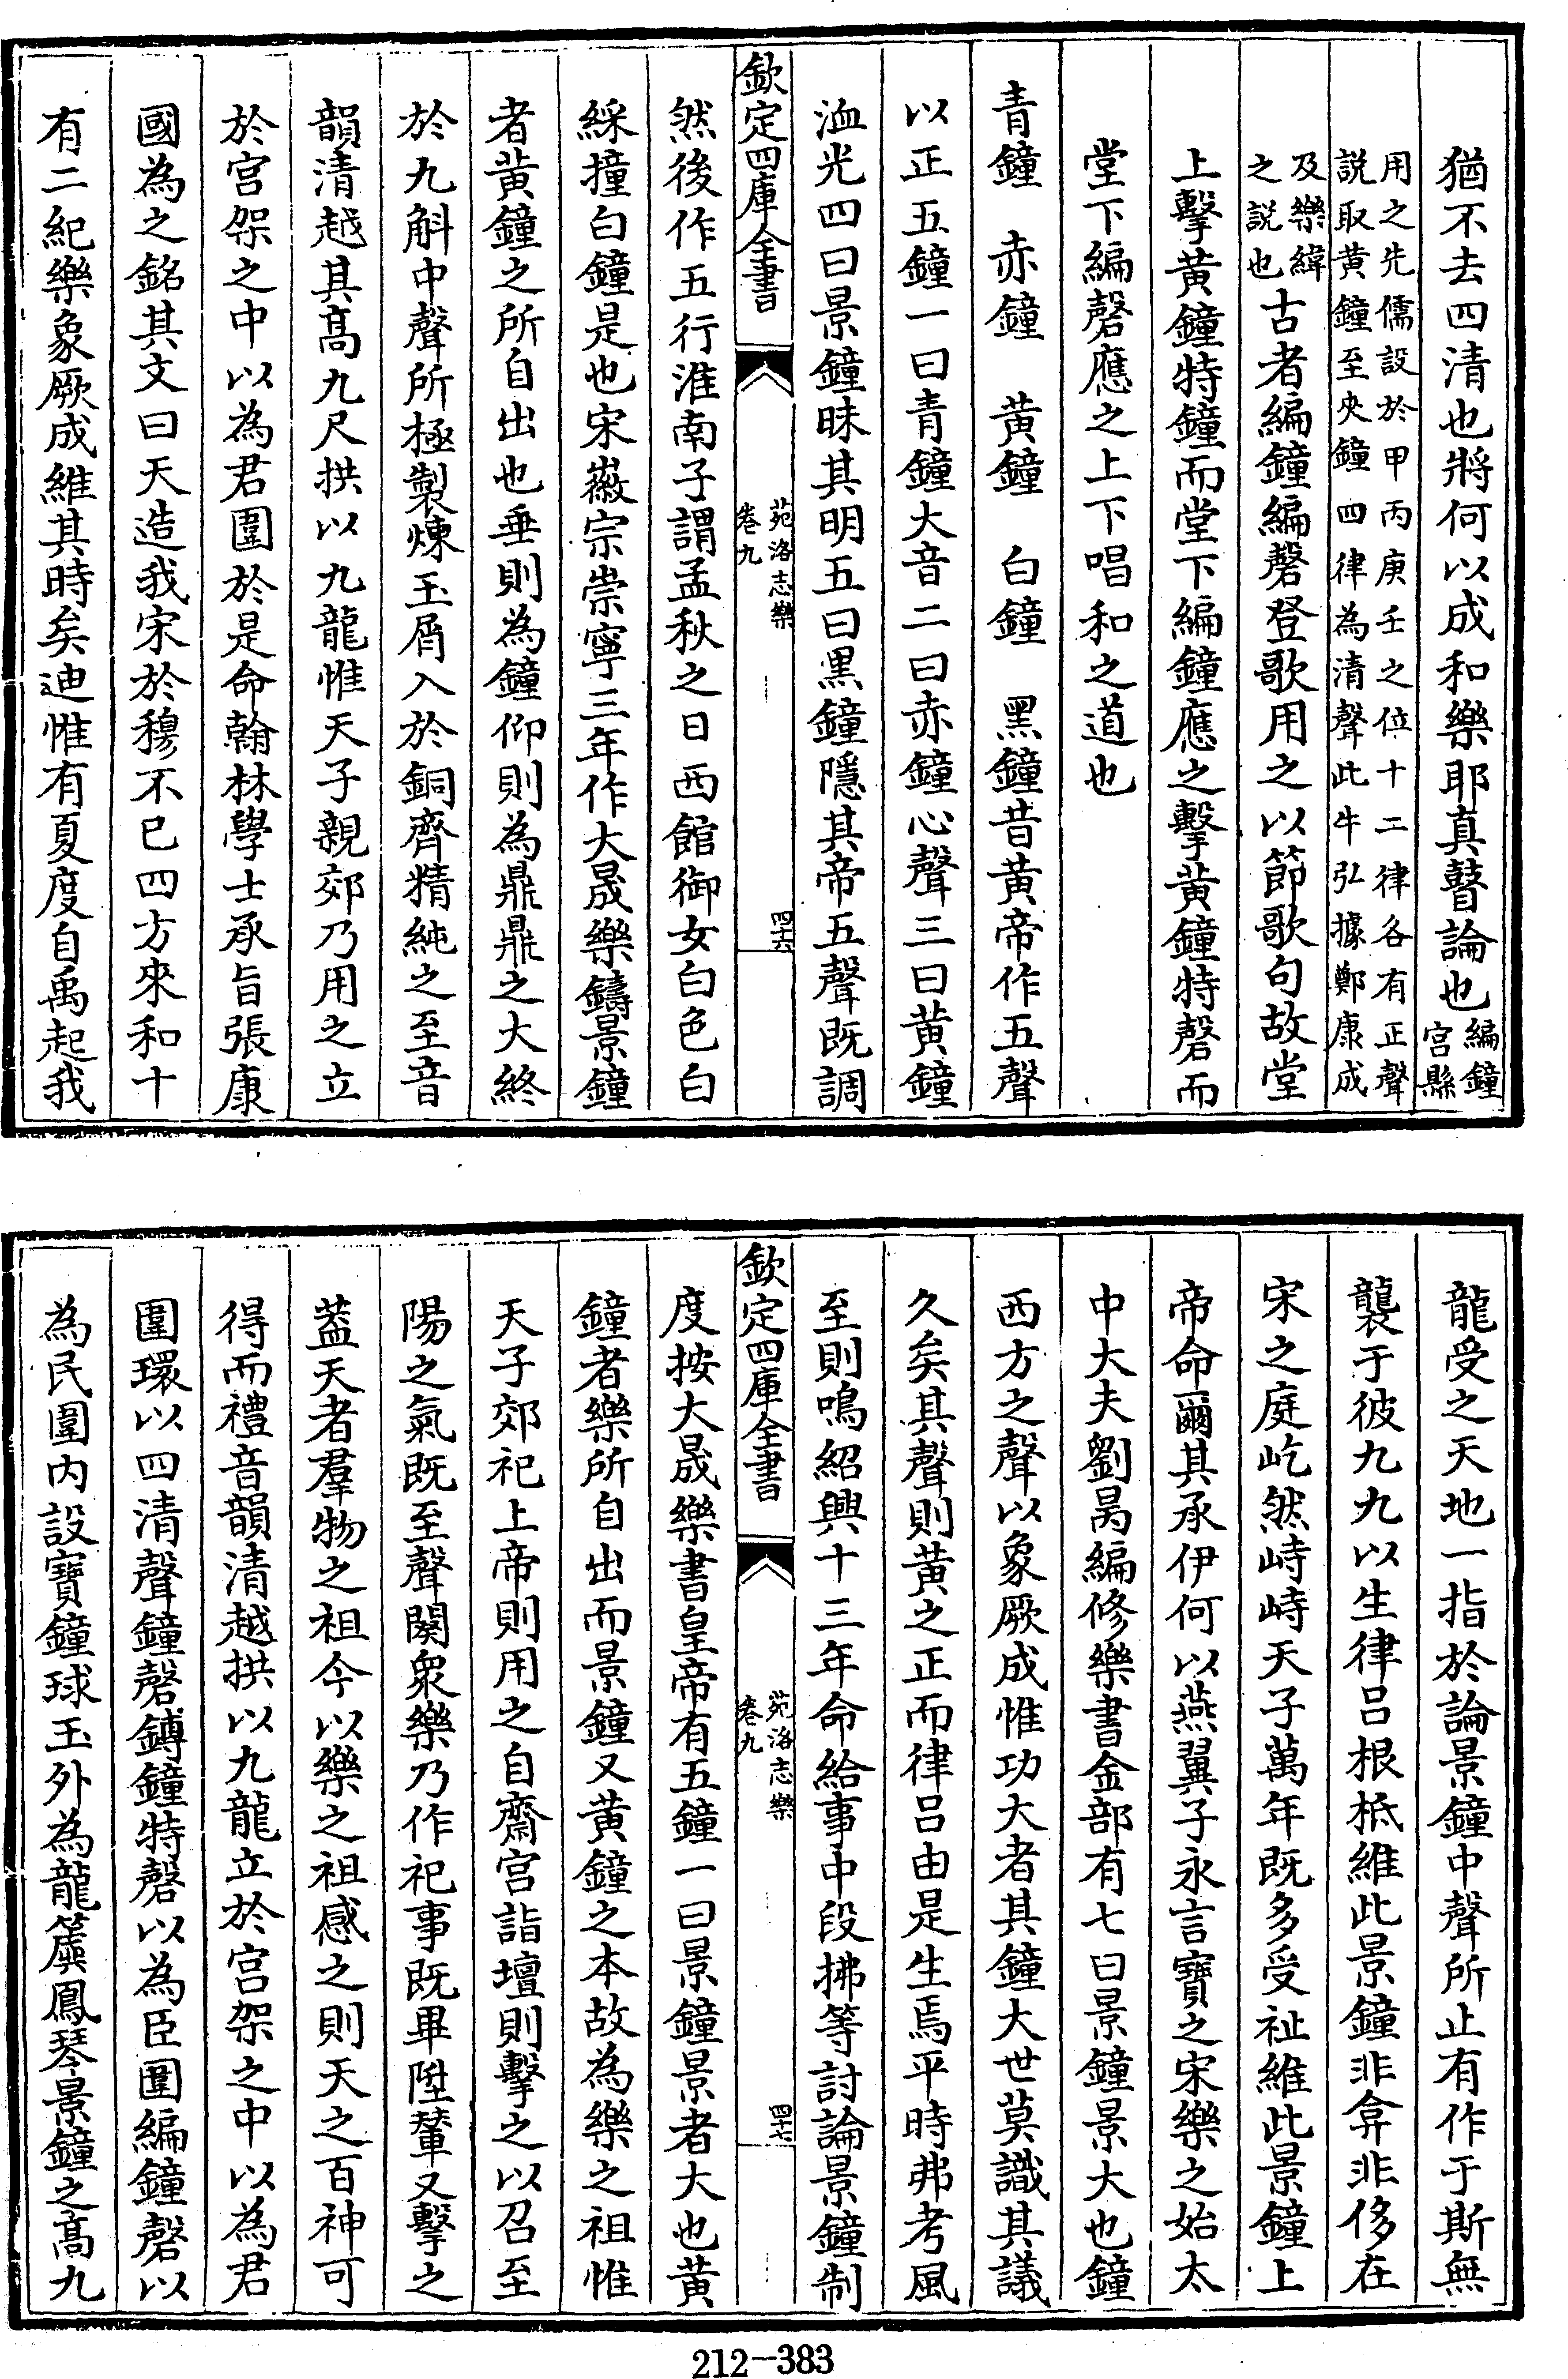 猶不去四清也將何以成和樂耶真瞽論也編鐘宫縣
用之先儒設於甲丙庚壬之位十二律各有正聲
説取黄鐘至夾鐘四律為清聲此牛弘據鄭康成
及樂緯
之説也古者編鐘編磬登歌用之以節歌句故堂
上擊黄鐘特鐘而堂下編鐘應之擊黄鐘特磬而
堂下編磬應之上下唱和之道也
青鐘 赤鐘 黄鐘 白鐘 黑鐘昔黄帝作五聲
以正五鐘一曰青鐘大音二曰赤鐘心聲三曰黄鐘
洫光四曰景鐘昧其明五曰黑鐘隱其帝五聲既調
欽定四庫全書
苑洛志樂
卷九
四十六
然後作五行淮南子謂孟秋之日西館御女白色白
綵撞白鐘是也宋徽宗崇寧三年作大晟樂鑄景鐘
者黄鐘之所自出也垂則為鐘仰則為鼎鼎之大終
於九斛中聲所極製煉玉屑入於銅齊精純之至音
韻清越其髙九尺拱以九龍惟天子親郊乃用之立
於宫架之中以為君圍於是命翰林學士承旨張康
國為之銘其文曰天造我宋於穆不已四方來和十
有二紀樂象厥成維其時矣迪惟有夏度自禹起我
龍受之天地一指於論景鐘中聲所止有作于斯無
襲于彼九九以生律吕根柢維此景鐘非弇非侈在
宋之庭屹然峙峙天子萬年既多受祉維此景鐘上
帝命爾其承伊何以燕翼子永言寶之宋樂之始太
中大夫劉昺編修樂書金部有七曰景鐘景大也鐘
西方之聲以象厥成惟功大者其鐘大世莫識其議
久矣其聲則黄之正而律吕由是生焉平時弗考風
至則鳴紹興十三年命給事中段拂等討論景鐘制
欽定四庫全書
苑洛志樂
卷九
四十七
度按大晟樂書皇帝有五鐘一曰景鐘景者大也黄
鐘者樂所自出而景鐘又黄鐘之本故為樂之祖惟
天子郊祀上帝則用之自齋宫詣壇則擊之以召至
陽之氣既至聲闋衆樂乃作祀事既畢陞輦又擊之
蓋天者羣物之祖今以樂之祖感之則天之百神可
得而禮音韻清越拱以九龍立於宫架之中以為君
圍環以四清聲鐘磬鎛鐘特磬以為臣圍編鐘磬以
為民圍内設寶鐘球玉外為龍簴鳳琴景鐘之髙九
212-383